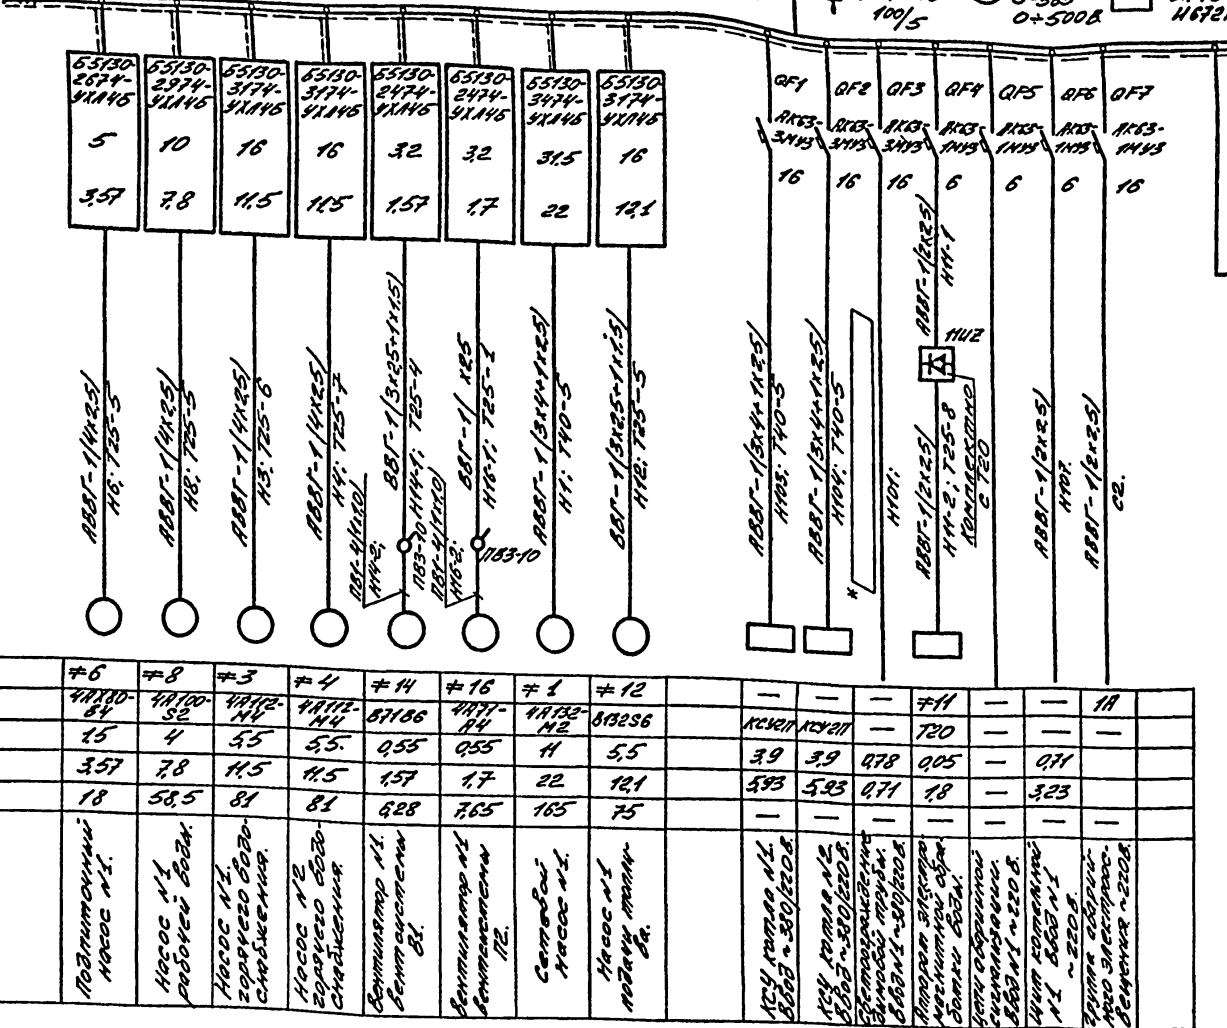 100/5
0÷500В
Б5130-
2674-
УХЛ4Б
5
3,57
Б5130-
2974-
УХЛ4Б
10
7,8
Б5130-
3174-
УХЛ4Б
16
11,5
Б5130-
3174-
УХЛ4Б
16
11,5
Б5130-
2474-
УХЛ4Б
3,2
1,57
Б5130-
2474-
УХЛ4Б
3,2
1,7
Б5130-
3474-
УХЛ4Б
31,5
22
Б5130-
3174-
УХЛ4Б
16
12,1
QF1
АК63-
3МУ3
16
QF2
АК63-
3МУ3
16
QF3
АК63-
3МУ3
16
QF4
АК63-
1МУ3
6
QF5
АК63-
1МУ3
6
QF6
АК63-
1МУ3
6
QF7
АК63-
1МУ3
16
АВВГ-1(4х2,5)
Н6; Т25-5
АВВГ-1(4х2,5)
Н8; Т25-5
АВВГ-1(4х2,5)
Н3; Т25-6
АВВГ-1(4х2,5)
Н4; Т25-7
ВВГ-1(3х2,5+1х1,5)
Н14-1; Т25-4
ПВ1-4(1х1,0)
Н14-2;
ПВ3-10
ВВГ-1( х2,5
Н16-1; Т25-1
ПВ1-4(1х1,0)
Н16-2;
ПВ3-10
АВВГ-1(3х4+1х2,5)
Н1; Т40-5
ВВГ-1(3х2,5+1х1,5)
Н12; Т25-5
АВВГ-1(3х4+1х2,5)
Н103; Т40-5
АВВГ-1(3х4+1х2,5)
Н104; Т40-5
*
Н101;
АВВГ-1(2х2,5)
Н11-1
11UZ
АВВГ-1(2х2,5)
Н11-2; Т25-8
Комплектно
с Т20
АВВГ-1(2х2,5)
Н107.
АВВГ-1(2х2,5)
с2.
≠6 ≠8 ≠3 ≠4 ≠14 ≠16 ≠1 ≠12 — — — ≠11 — — 1А
4АХ80-
В4
4А100-
S2
4А112-
М4
4А112-
М4
В71В6
4А71-
А4
4А132-
М2
В132S6
КСУ2П КСУ2П — Т20 — — —
1,5 4 5,5 5,5. 0,55 0,55 11 5,5 3,9 3,9 0,78 0,05 — 0,71
3,57 7,8 11,5 11,5 1,57 1,7 22 12,1 5,93 5,93 0,71 1,8 — 3,23
18 58,5 81 81 6,28 7,65 165 75 — — — — — — —
Подпиточный
насос №1.
Насос №1
рабочей воды.
Насос №1.
горячего водо-
снабжения.
Насос №2
горячего водо-
снабжения.
Вентилятор №1.
вентсистемы
В1.
Вентилятор №1
вентсистемы
П2.
Сетевой
насос №1.
Насос №1
подачи топли-
ва.
КСУ котла №1.
Ввод ~380/220В.
КСУ котла №2.
Ввод ~380/220В.
Светоограждение
дымовой трубы.
Ввод №1 ~380/220В.
Аппарат электро-
магнитной обра-
ботки воды.
Цепи аварийной
сигнализации.
Ввод №1 ~220В.
Щит котельной
№1 Ввод №1
~220В.
Группа аварий-
ного электроос-
вещения ~220В.